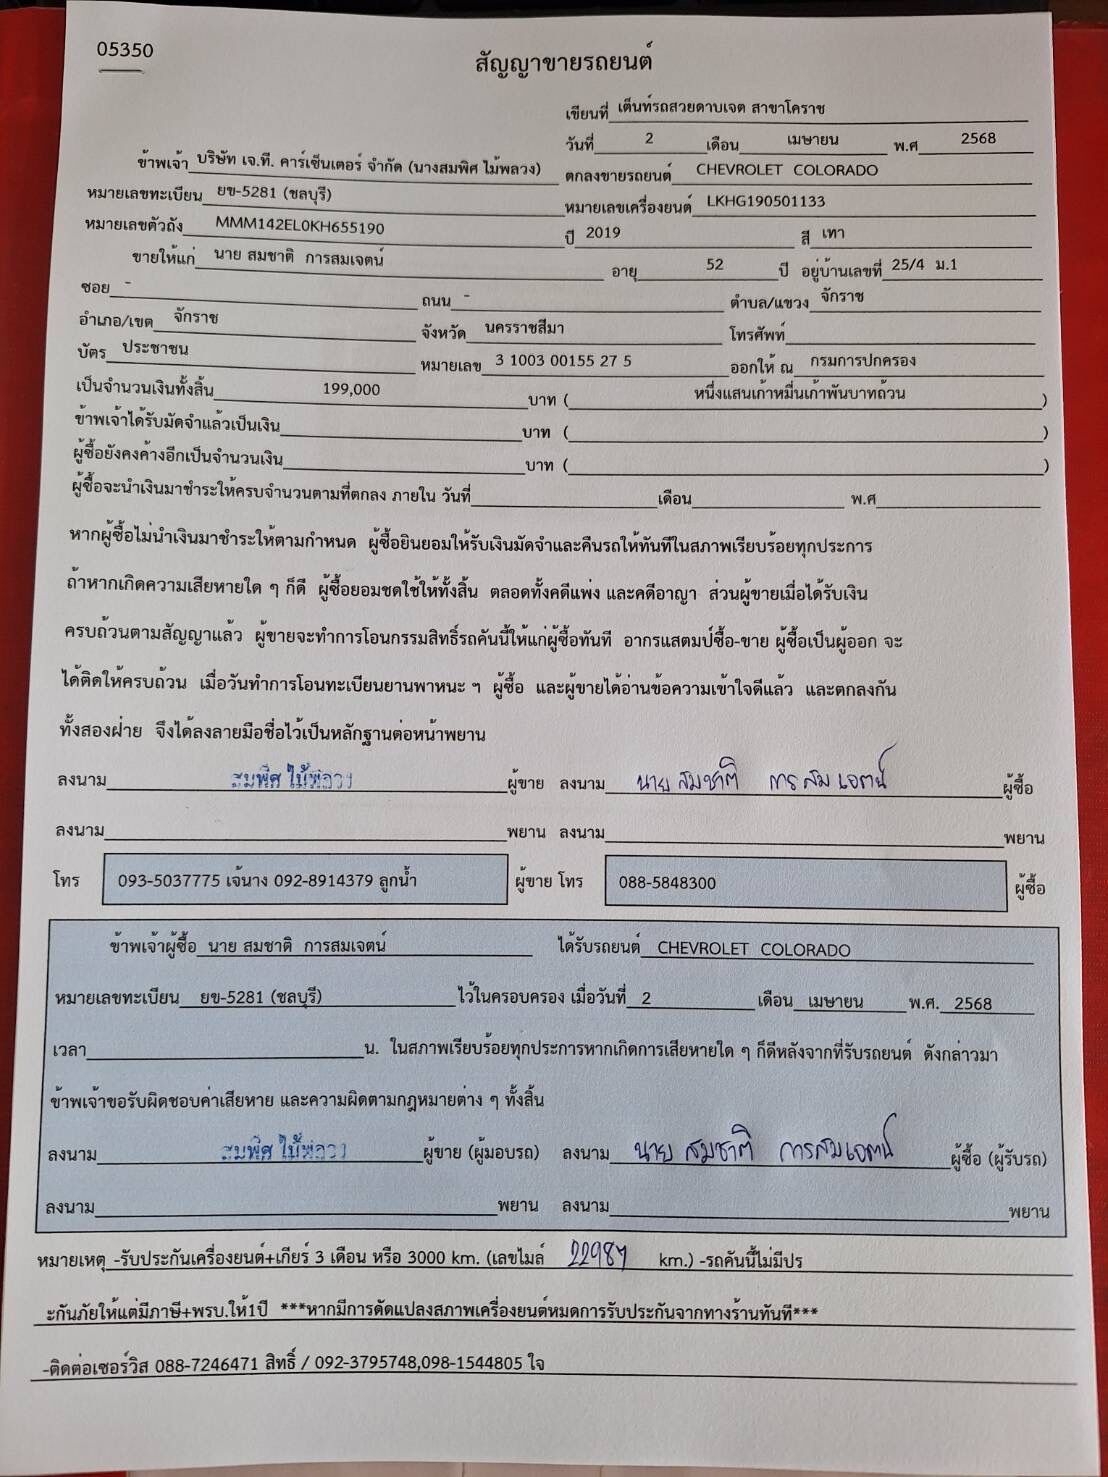 05350
สัญญาขายรถยนต์
เขียนที่ เต็นท์รถสวยดาบเจต สาขาโคราช
วันที่ 2 เดือน เมษายน พ.ศ 2568
ข้าพเจ้า บริษัท เจ.ที. คาร์เซ็นเตอร์ จำกัด (นางสมพิศ ไม้พลวง) ตกลงขายรถยนต์ CHEVROLET COLORADO
หมายเลขทะเบียน ยข-5281 (ชลบุรี) หมายเลขเครื่องยนต์ LKHG190501133
หมายเลขตัวถัง MMM142EL0KH655190 ปี 2019 สี เทา
ขายให้แก่ นาย สมชาติ การสมเจตน์ อายุ 52 ปี อยู่บ้านเลขที่ 25/4 ม.1
ซอย - ถนน - ตำบล/แขวง จักราช
อำเภอ/เขต จักราช จังหวัด นครราชสีมา โทรศัพท์
บัตร ประชาชน หมายเลข 3 1003 00155 27 5 ออกให้ ณ กรมการปกครอง
เป็นจำนวนเงินทั้งสิ้น 199,000 บาท ( หนึ่งแสนเก้าหมื่นเก้าพันบาทถ้วน )
ข้าพเจ้าได้รับมัดจำแล้วเป็นเงิน บาท ( )
ผู้ซื้อยังคงค้างอีกเป็นจำนวนเงิน บาท ( )
ผู้ซื้อจะนำเงินมาชำระให้ครบจำนวนตามที่ตกลง ภายใน วันที่ เดือน พ.ศ
หากผู้ซื้อไม่นำเงินมาชำระให้ตามกำหนด ผู้ซื้อยินยอมให้รับเงินมัดจำและคืนรถให้ทันทีในสภาพเรียบร้อยทุกประการ
ถ้าหากเกิดความเสียหายใด ๆ ก็ดี ผู้ซื้อยอมชดใช้ให้ทั้งสิ้น ตลอดทั้งคดีแพ่ง และคดีอาญา ส่วนผู้ขายเมื่อได้รับเงิน
ครบถ้วนตามสัญญาแล้ว ผู้ขายจะทำการโอนกรรมสิทธิ์รถคันนี้ให้แก่ผู้ซื้อทันที อากรแสตมป์ซื้อ-ขาย ผู้ซื้อเป็นผู้ออก จะ
ได้ติดให้ครบถ้วน เมื่อวันทำการโอนทะเบียนยานพาหนะ ฯ ผู้ซื้อ และผู้ขายได้อ่านข้อความเข้าใจดีแล้ว และตกลงกัน
ทั้งสองฝ่าย จึงได้ลงลายมือชื่อไว้เป็นหลักฐานต่อหน้าพยาน
ลงนาม สมพิศ ไม้พลวง ผู้ขาย ลงนาม นาย สมชาติ การสมเจตน์ ผู้ซื้อ
ลงนาม พยาน ลงนาม พยาน
โทร 093-5037775 เจ้นาง 092-8914379 ลูกน้ำ ผู้ขาย โทร 088-5848300 ผู้ซื้อ
ข้าพเจ้าผู้ซื้อ นาย สมชาติ การสมเจตน์ ได้รับรถยนต์ CHEVROLET COLORADO
หมายเลขทะเบียน ยข-5281 (ชลบุรี) ไว้ในครอบครอง เมื่อวันที่ 2 เดือน เมษายน พ.ศ. 2568
เวลา น. ในสภาพเรียบร้อยทุกประการหากเกิดการเสียหายใด ๆ ก็ดีหลังจากที่รับรถยนต์ ดังกล่าวมา
ข้าพเจ้าขอรับผิดชอบค่าเสียหาย และความผิดตามกฎหมายต่าง ๆ ทั้งสิ้น
ลงนาม สมพิศ ไม้พลวง ผู้ขาย (ผู้มอบรถ) ลงนาม นาย สมชาติ การสมเจตน์ ผู้ซื้อ (ผู้รับรถ)
ลงนาม พยาน ลงนาม พยาน
หมายเหตุ -รับประกันเครื่องยนต์+เกียร์ 3 เดือน หรือ 3000 km. (เลขไมล์ 22987 km.) -รถคันนี้ไม่มีปร
ะกันภัยให้แต่มีภาษี+พรบ.ให้1ปี ***หากมีการดัดแปลงสภาพเครื่องยนต์หมดการรับประกันจากทางร้านทันที***
-ติดต่อเซอร์วิส 088-7246471 สิทธิ์ / 092-3795748,098-1544805 ใจ